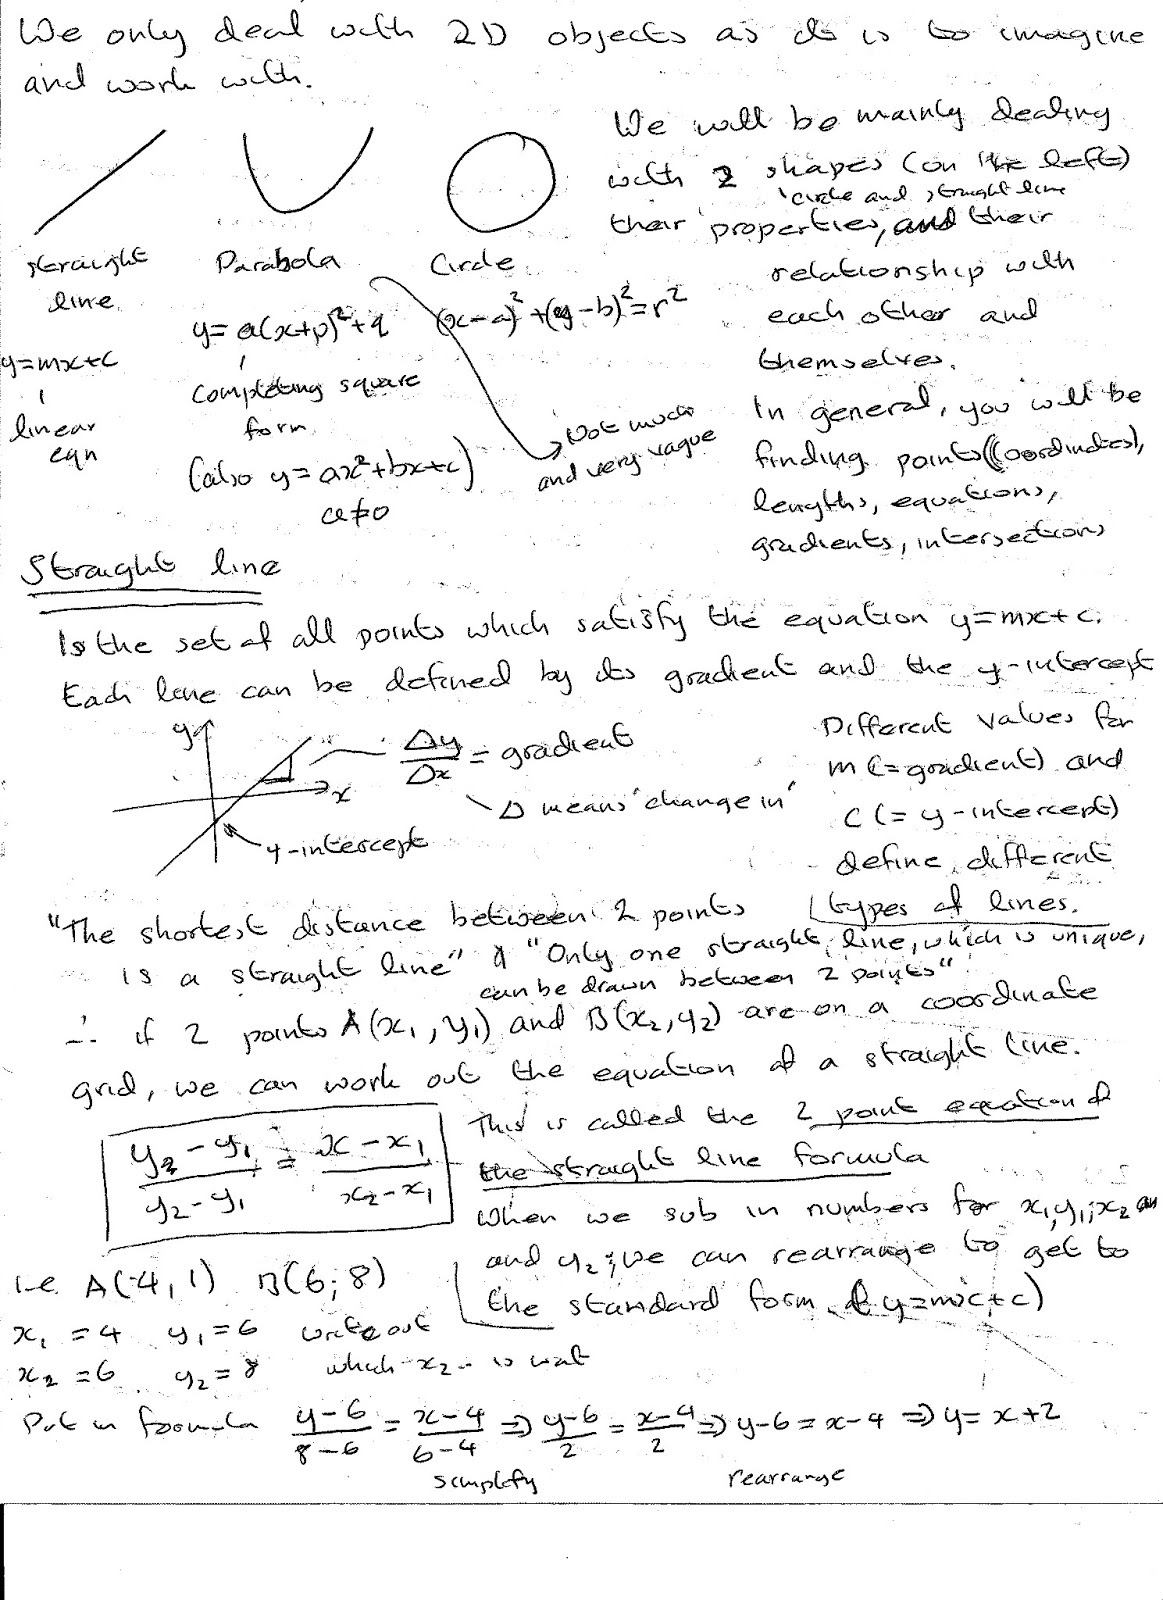 We only deal with 2D objects as its is to imagine
and work with.
We will be mainly dealing
with 2 shapes (on the left)
'circle and straight line
their properties, and their
relationship with
each other and
themselves.
In general, you will be
finding points (coordinates),
lengths, equations,
gradients, intersections
straight
line
y=mx+c
linear
eqn
Parabola
y=a(x+p)²+q
completing square
form
(also y=ax²+bx+c)
a≠0
Circle
(x-a)²+(y-b)²=r²
Not much
and very vague
Straight line
Is the set of all points which satisfy the equation y=mx+c.
Each line can be defined by its gradient and the y-intercept
y
x
Δy/Δx = gradient
Δ means 'change in'
y-intercept
Different values for
m (=gradient) and
c (= y-intercept)
define different
types of lines.
"The shortest distance between 2 points
is a straight line" & "Only one straight line, which is unique,
can be drawn between 2 points"
∴ if 2 points A(x₁, y₁) and B(x₂, y₂) are on a coordinate
grid, we can work out the equation of a straight line.
(y₂-y₁)/(y₂-y₁) = (x-x₁)/(x₂-x₁)
This is called the 2 point equation of
the straight line formula
When we sub in numbers for x₁, y₁, x₂
and y₂, we can rearrange to get to
the standard form of y=mx+c)
i.e A(-4, 1) B(6, 8)
x₁ = 4 y₁ = 6 write out
x₂ = 6 y₂ = 8 which x₂ is wat
Put in formula (y-6)/(8-6) = (x-4)/(6-4) ⇒ (y-6)/2 = (x-4)/2 ⇒ y-6 = x-4 ⇒ y= x+2
simplify rearrange